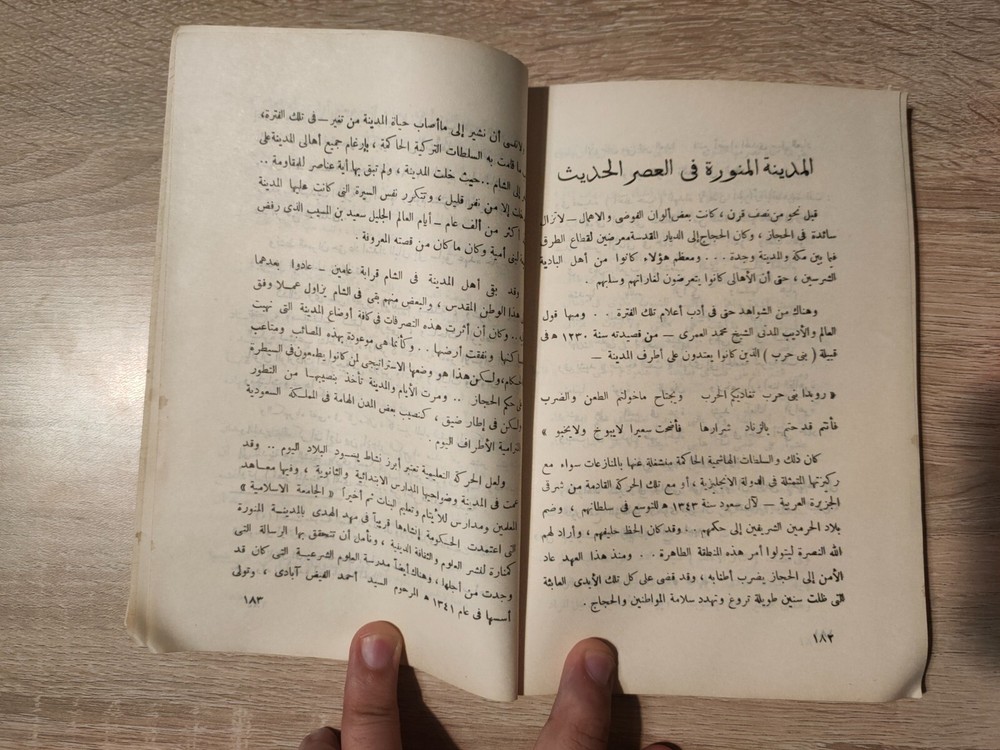 المدينة المنورة فى العصر الحديث
قبل نحو من نصف قرن ، كانت بعض ألوان الفوضى والاهمال – لا تزال
سائدة فى الحجاز ، وكان الحجاج إلى الديار المقدسة معرضين لقطاع الطرق
فيما بين مكة والمدينة وجدة . . . ومعظم هؤلاء كانوا من أهل البادية
الشرسين ، حتى أن الأهالى كانوا يتعرضون لغاراتهم وسلبهم . .
وهناك من الشواهد حتى فى أدب أعلام تلك الفترة . . ومنها قول
العالم والأديب المدنى الشيخ محمد العمرى – من قصيدته سنة ١٢٣٠ ه فى
قبيلة ( بنى حرب ) الذين كانوا يعتدون على أطرف المدينة –
« رويدا بنى حرب تفاديكم الحرب ويجتاح ماخولتم الطعن والضرب
فأنتم قدحتم بالزناد شرارها فأضحت سعيرا لايبوخ ولايخبو »
كان ذلك والسلطات الهاشمية الحاكمة منشغلة عنها بالمنازعات سواء مع
ركيزتها المتمثلة فى الدولة الانجليزية ، أو مع تلك الحركة القادمة من شرقى
الجزيرة العربية – لآل سعود سنة ١٣٤٣ ه للتوسع فى سلطانهم ، وضم
بلاد الحرمين الشريفين إلى حكمهم . . وقد كان الحظ حليفهم ، وأراد لهم
الله النصرة ليتولوا أمر هذه المنطقة الطاهرة . . ومنذ هذا العهد عاد
الأمن إلى الحجاز يضرب أطنابه ، وقد قضى على كل تلك الأيدى العابثة
التى ظلت سنين طويلة تروع وتهدد سلامة المواطنين والحجاج .
١٨٢
لاننسى أن نشير إلى ماأصاب حياة المدينة من تغير – فى تلك الفترة،
ما قامت به السلطات التركية الحاكمة ، بإرغام جميع أهالى المدينة على
إلى الشام . . حيث خلت المدينة ، ولم تبق بها أية عناصر للمقاومة . .
إلا من نفر قليل ، وتتكرر نفس السيرة التى كانت عليها المدينة
أكثر من ألف عام – أيام العالم الجليل سعيد بن المسيب الذى رفض
لبنى أمية وكان ماكان من قصته المعروفة .
وقد بقى أهل المدينة فى الشام قرابة عامين – عادوا بعدهما
هذا الوطن المقدس ، والبعض منهم بقى فى الشام يزاول عملا وفق
. . وكان أن أثرت هذه التصرفات فى كافة أوضاع المدينة التى نهبت
ونفقت أرضها . . وكأنما هى موعودة بهذه المصائب ومتاعب
الحكام، ولكن هذا هو وضعها الاستراتيجى لمن كانوا يطمعون فى السيطرة
حكم الحجاز . . ومرت الأيام والمدينة تأخذ بنصيبها من التطور
ولكن فى إطار ضيق ، كنصيب بعض المدن الهامة فى المملكة السعودية
المترامية الأطراف اليوم .
ولعل الحركة التعليمية تعتبر أبرز نشاط يسود البلاد اليوم . . وقد
عمت فى المدينة وضواحيها المدارس الابتدائية والثانوية ، وفيها معاهد
المعلمين ومدارس للأيتام وتعليم البنات ثم أخيراً « الجامعة الاسلامية »
التى اعتمدت الحكومة إنشاءها قريباً فى مهد الهدى بالمدينة المنورة
كمنارة لنشر العلوم والثقافة الدينية ، ونأمل أن تتحقق بها الرسالة التى
وجدت من أجلها ، وهناك أيضاً مدرسة العلوم الشرعية التى كان قد
أسسها فى عام ١٣٤١ ه المرحوم السيد أحمد الفيض آبادى ، وتولى
١٨٣